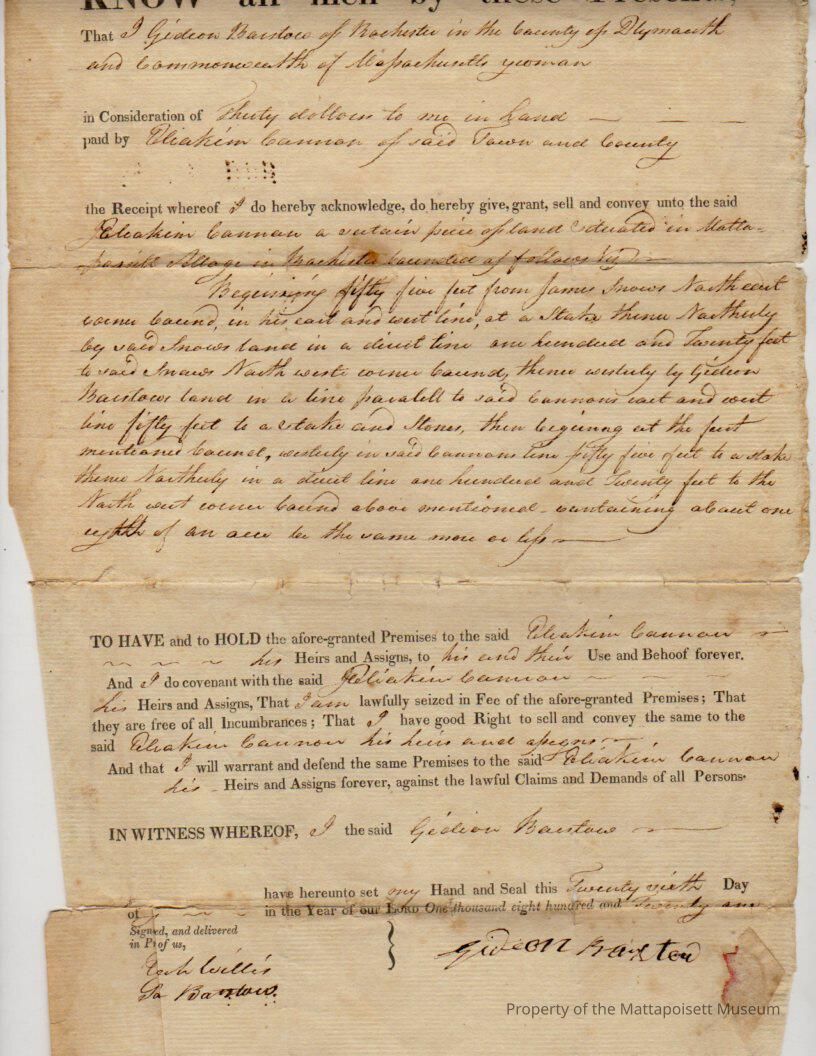 KNOW all men by these Presents,
That I Gideon Barstow of Rochester in the County of Plymouth
and Commonwealth of Massachusetts yeoman
in Consideration of Thirty dollars to me in hand
paid by Eliakim Cannon of said Town and County
the Receipt whereof I do hereby acknowledge, do hereby give, grant, sell and convey unto the said
Eliakim Cannon a certain piece of land situated in Matta-
Village in Rochester bounded as follows Viz
Beginning fifty five feet from James Snows North east
corner bound, in his east and west line, at a Stake thence Northerly
by said Snows land in a direct line one hundred and Twenty feet
to said Snows North west corner bound, thence westerly by Gideon
Barstows land in a line paralell to said Cannons east and west
line fifty feet to a stake and Stones, then begining at the first
mentioned bound, westerly in said Cannons line fifty five feet to a stake
thence Northerly in a direct line one hundred and Twenty feet to the
North west corner bound above mentioned - containing about one
eighth of an acre be the same more or less
TO HAVE and to HOLD the afore-granted Premises to the said Eliakim Cannon
his Heirs and Assigns, to his and their Use and Behoof forever.
And I do covenant with the said Eliakim Cannon
his Heirs and Assigns, That I am lawfully seized in Fee of the afore-granted Premises; That
they are free of all Incumbrances; That I have good Right to sell and convey the same to the
said Eliakim Cannon his heirs and assigns
And that I will warrant and defend the same Premises to the said Eliakim Cannon
his - Heirs and Assigns forever, against the lawful Claims and Demands of all Persons.
IN WITNESS WHEREOF, I the said Gideon Barstow
have hereunto set my Hand and Seal this Twenty sixth Day
of in the Year of our LORD One thousand eight hundred and Twenty one
Signed, and delivered
in P of us,
Willis
Barstow
Gideon Barstow
Property of the Mattapoisett Museum